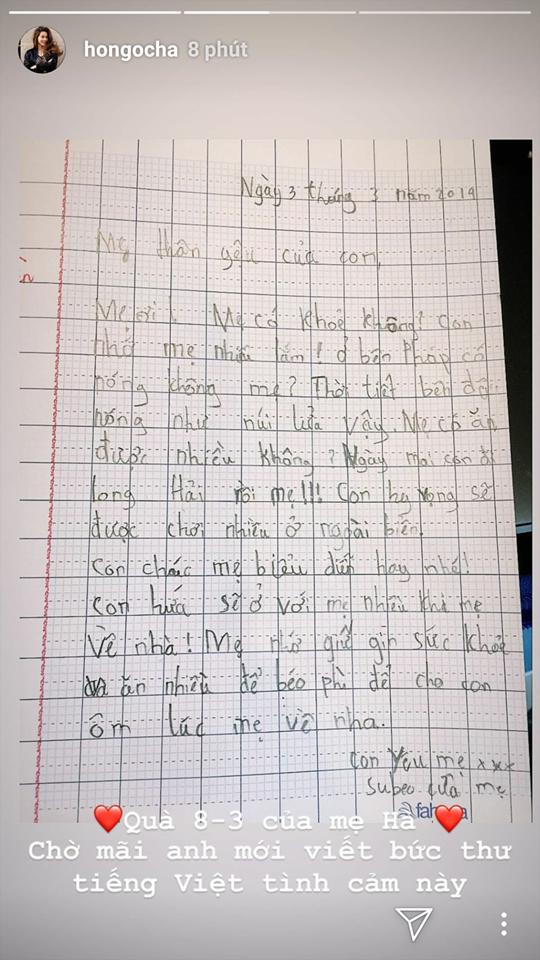 hongocha 8 phút
Ngày 3 tháng 3 năm 2019
Mẹ thân yêu của con,
Mẹ ơi! Mẹ có khoẻ không? Con
nhớ mẹ nhiều lắm! ở bên Pháp có
nóng không mẹ? Thời tiết bên đây
nóng như núi lửa vậy. Mẹ có ăn
được nhiều không? Ngày mai con đi
Long Hải rồi mẹ!!! Con hy vọng sẽ
được chơi nhiều ở ngoài biển.
Con chúc mẹ biểu diễn hay nhé!
Con hứa sẽ ở với mẹ nhiều khi mẹ
về nhà! Mẹ nhớ giữ gìn sức khoẻ
và ăn nhiều để béo phì để cho con
ôm lúc mẹ về nha.
Con yêu mẹ xxx
Subeo của mẹ
❤️Quà 8-3 của mẹ Hà ❤️
Chờ mãi anh mới viết bức thư
tiếng Việt tình cảm này